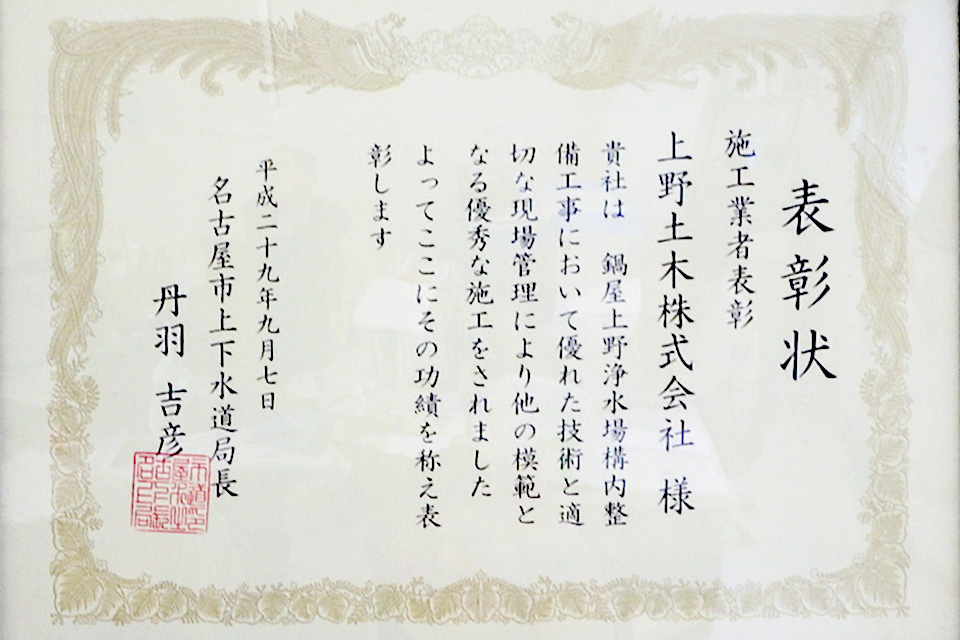 表彰状
施工業者表彰
上野土木株式会社 様
貴社は 鍋屋上野浄水場構内整
備工事において優れた技術と適
切な現場管理により他の模範と
なる優秀な施工をされました
よってここにその功績を称え表
彰します
平成二十九年九月七日
名古屋市上下水道局長
丹羽 吉彦